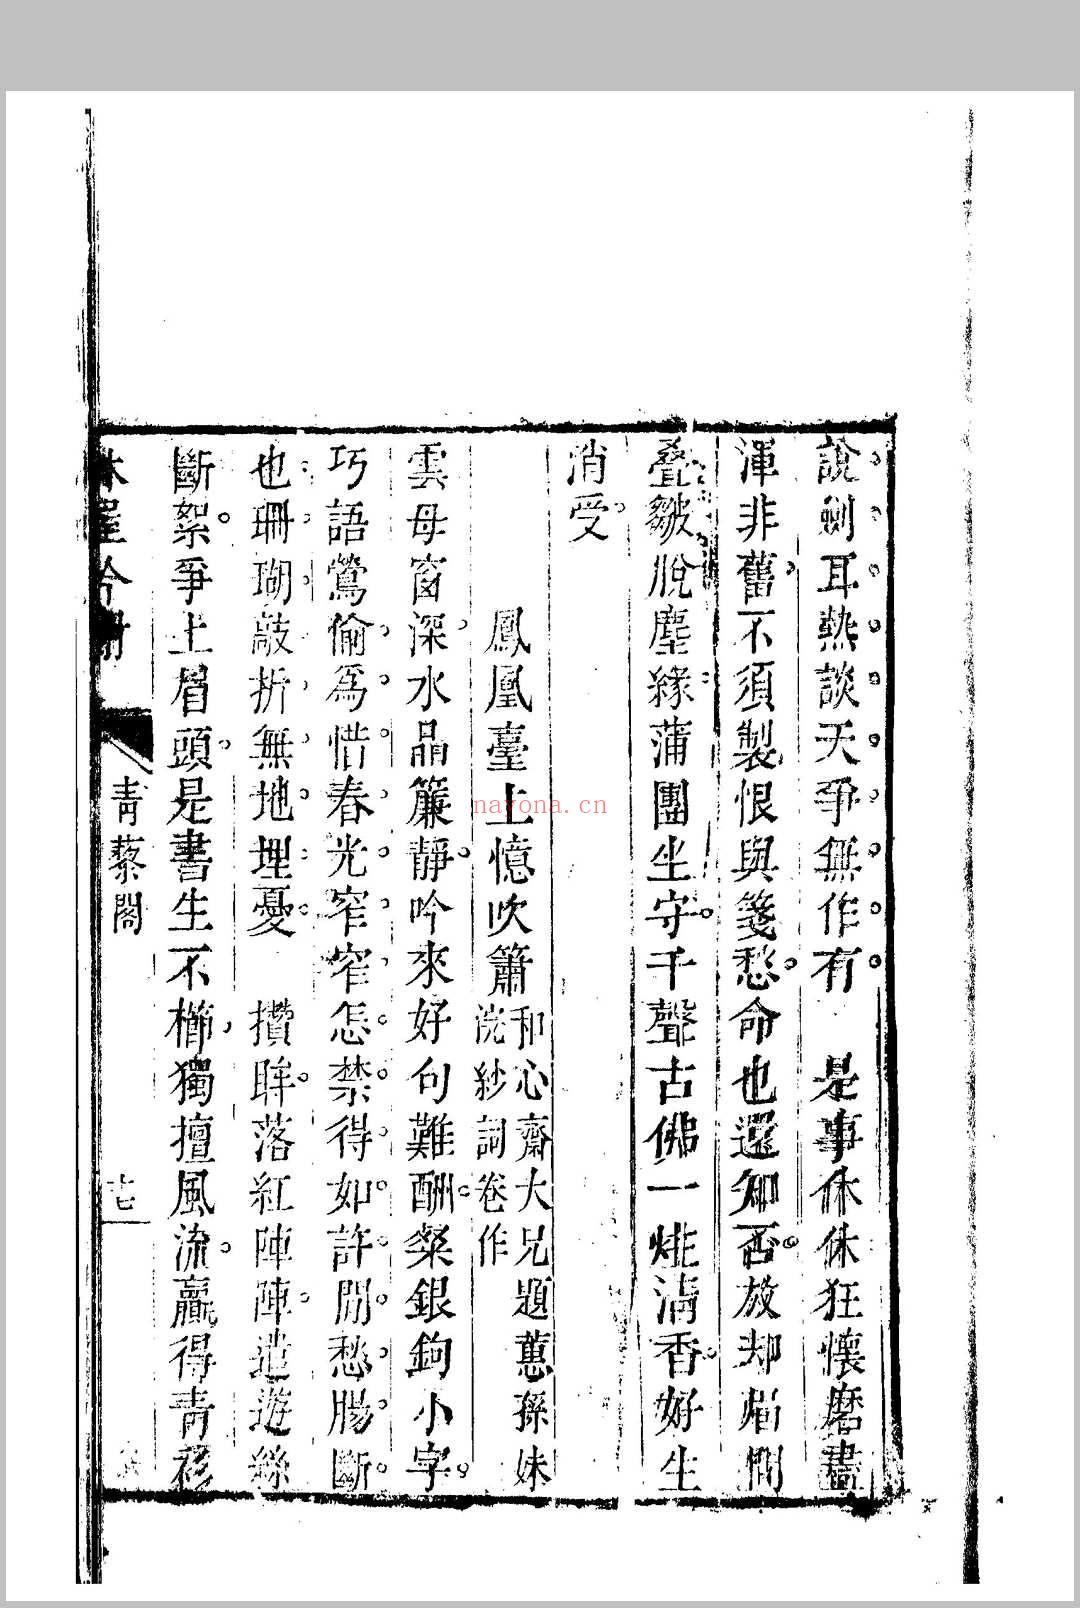 說劍耳熱談天爭無作有　是事休休狂懷磨盡
渾非舊不須製恨與箋愁命也還知否放却眉間
叠皺脫塵緣蒲團坐守千聲古佛一炷清香好生
消受
鳳凰臺上憶吹簫和心齋大兄題蕙孫妹浣紗詞卷作
雲母窗深水晶簾靜吟來好句難酬粲銀鉤小字
巧語鶯偷爲惜春光窄窄怎禁得如許閒愁腸斷
也珊瑚敲折無地埋憂　攢眸落紅陣陣遣遊絲
斷絮爭上眉頭是書生不櫛獨擅風流贏得青衫
吟册　青藜閣　十七
nayona.cn